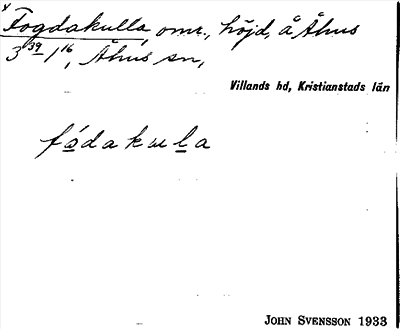 Fogdakulla, omr., höjd, å Åhus
3 39/1 16, Åhus sn,
Villands hd, Kristianstads län
fådakula
JOHN SVENSSON 1933